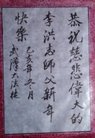 恭祝慈悲偉大的
李洪志師父新年
快樂
乙亥年九月
武漢大法徒